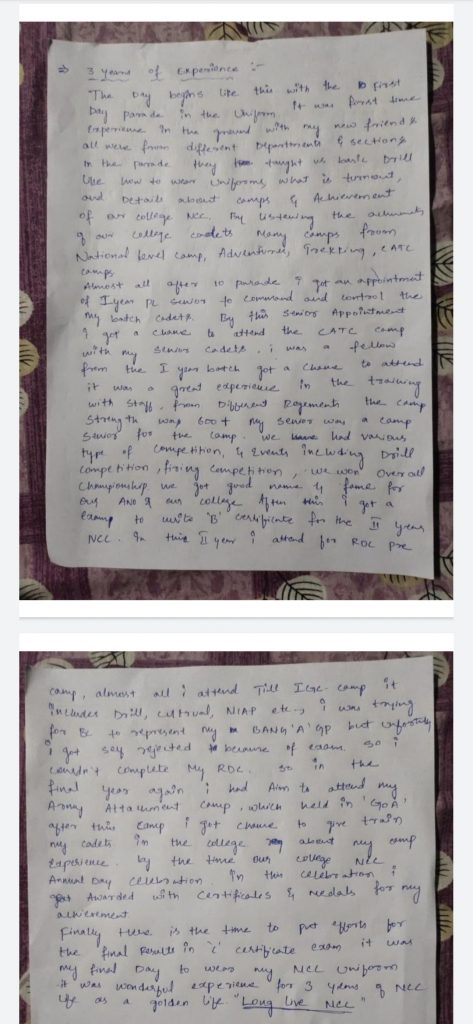 ⇒ 3 years of Experience :-
The Day begins like this with the first
Day parade in the Uniform It was first time
Experience in the ground with my new friends
all were from different Departments & sections
in the parade they taught us basic Drill
like how to wear Uniforms, what is turnout,
and Details about camps & Achievement
of our college NCC. By listening the
of our college cadets Many camps from
National level camp, Adventures, Trekking, CATC
camps
Almost all after 10 parade I got an appointment
of I year senior to command and control the
my batch cadets. By this senior Appointment
i got a chance to attend the CATC camp
with my senior cadets. i was a fellow
from the I year batch got a chance to attend
it was a great experience in the training
with staff, from Different Regements the camp
strength was 600 + my senior was a camp
senior for the camp. we had various
type of competition, & Events including Drill
competition, firing competition, we won Over all
championship we got good name & fame for
our ANO & our college After this i got a
Exam to write 'B' certificate for the II year
NCC. In this II year i attend for RDC pre
camp, almost all i attend Till IGC camp it
includes Drill, cultrual, NIAP etc., i was trying
for to represent my BANG 'A' GP but
i got self rejected because of exam. So i
couldn't complete My RDC. so in the
final year again i had Aim to attend my
Army Attachment camp, which held in 'GOA'
after this camp i got chance to give train
my cadets in the college about my camp
Experience. by the time our college NCC
Annual Day celebration. In this celebration i
got Awarded with certificates & medals for my
achievement
Finally Here is the time to put efforts for
the final Results in 'c' certificate exam it was
my final Day to wear my NCC Uniform
it was wonderful experience for 3 years of NCC
life as a golden life. "Long live NCC"